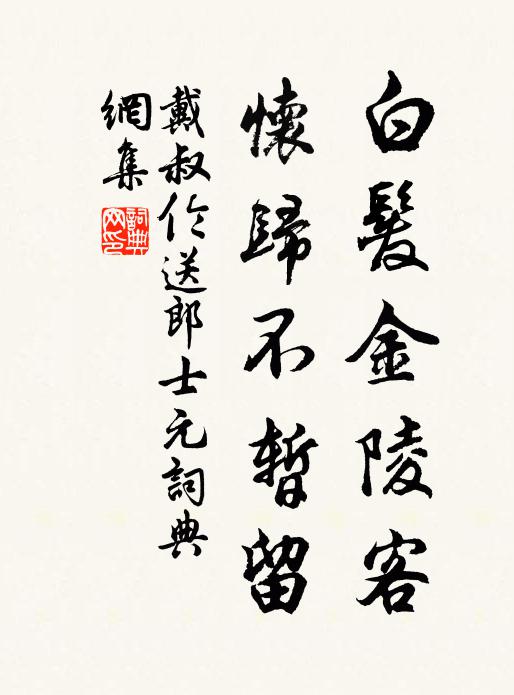 白髮金陵客
懷歸不暫留
戴叔伦送郎士元詞典
網集
詞典网印